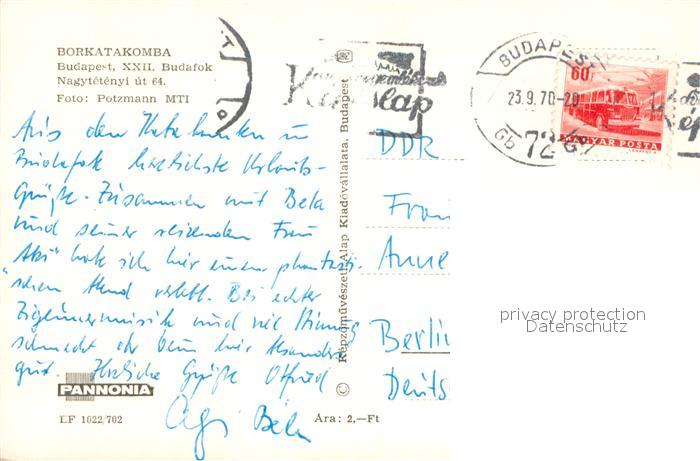 BORKATAKOMBA
Budapest, XXII. Budafok
Nagytétényi út 64.
Foto: Potzmann MTI
Aus den Katakomben in
Budafok herzlichste Urlaubs-
grüße. Zusammen mit Bela
und seiner reizenden Frau
"Agi" habe ich hier einen phantasti-
schen Abend verlebt. Bei echter
Zigeunermusik und viel Stimmung
schmeckt der Wein hier besonders
gut. Herzliche Grüße Otfried
Agi Béla
PANNONIA
EF 1022/702
Ara: 2,—Ft
© Képzőművészeti Alap Kiadóvállalata, Budapest
BUDAPEST
23.9.70-20
72
60f
MAGYAR POSTA
DDR
Frau
Anne
Berlin
Deuts
privacy protection
Datenschutz